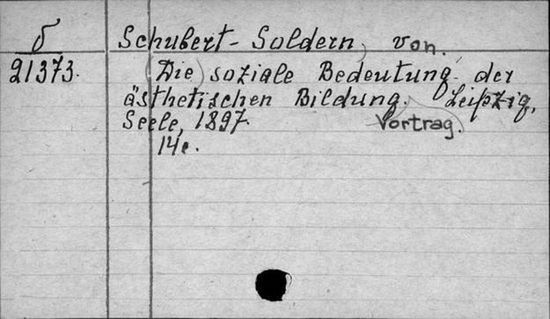 δ Schubert-Soldern, von.
21373. (Die) soziale Bedeutung der
ästhetischen Bildung. Leipzig,
Seele, 1897. Vortrag.
14c.